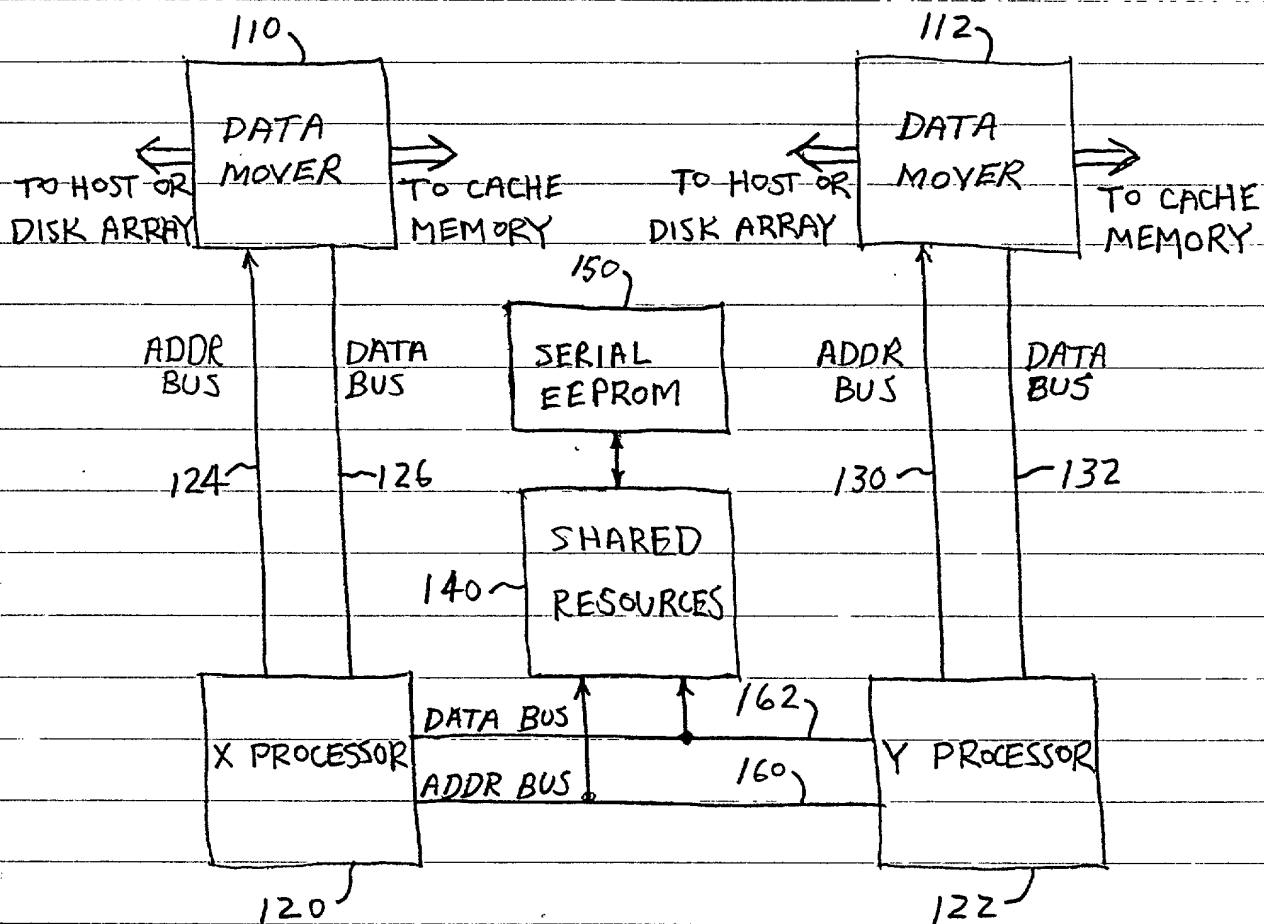 110
112
DATA
MOVER
DATA
MOVER
TO HOST OR
DISK ARRAY
TO CACHE
MEMORY
TO HOST OR
DISK ARRAY
TO CACHE
MEMORY
150
SERIAL
EEPROM
ADDR
BUS
DATA
BUS
ADDR
BUS
DATA
BUS
124
126
130
132
SHARED
RESOURCES
140
X PROCESSOR
DATA BUS
162
ADDR BUS
160
Y PROCESSOR
120
122